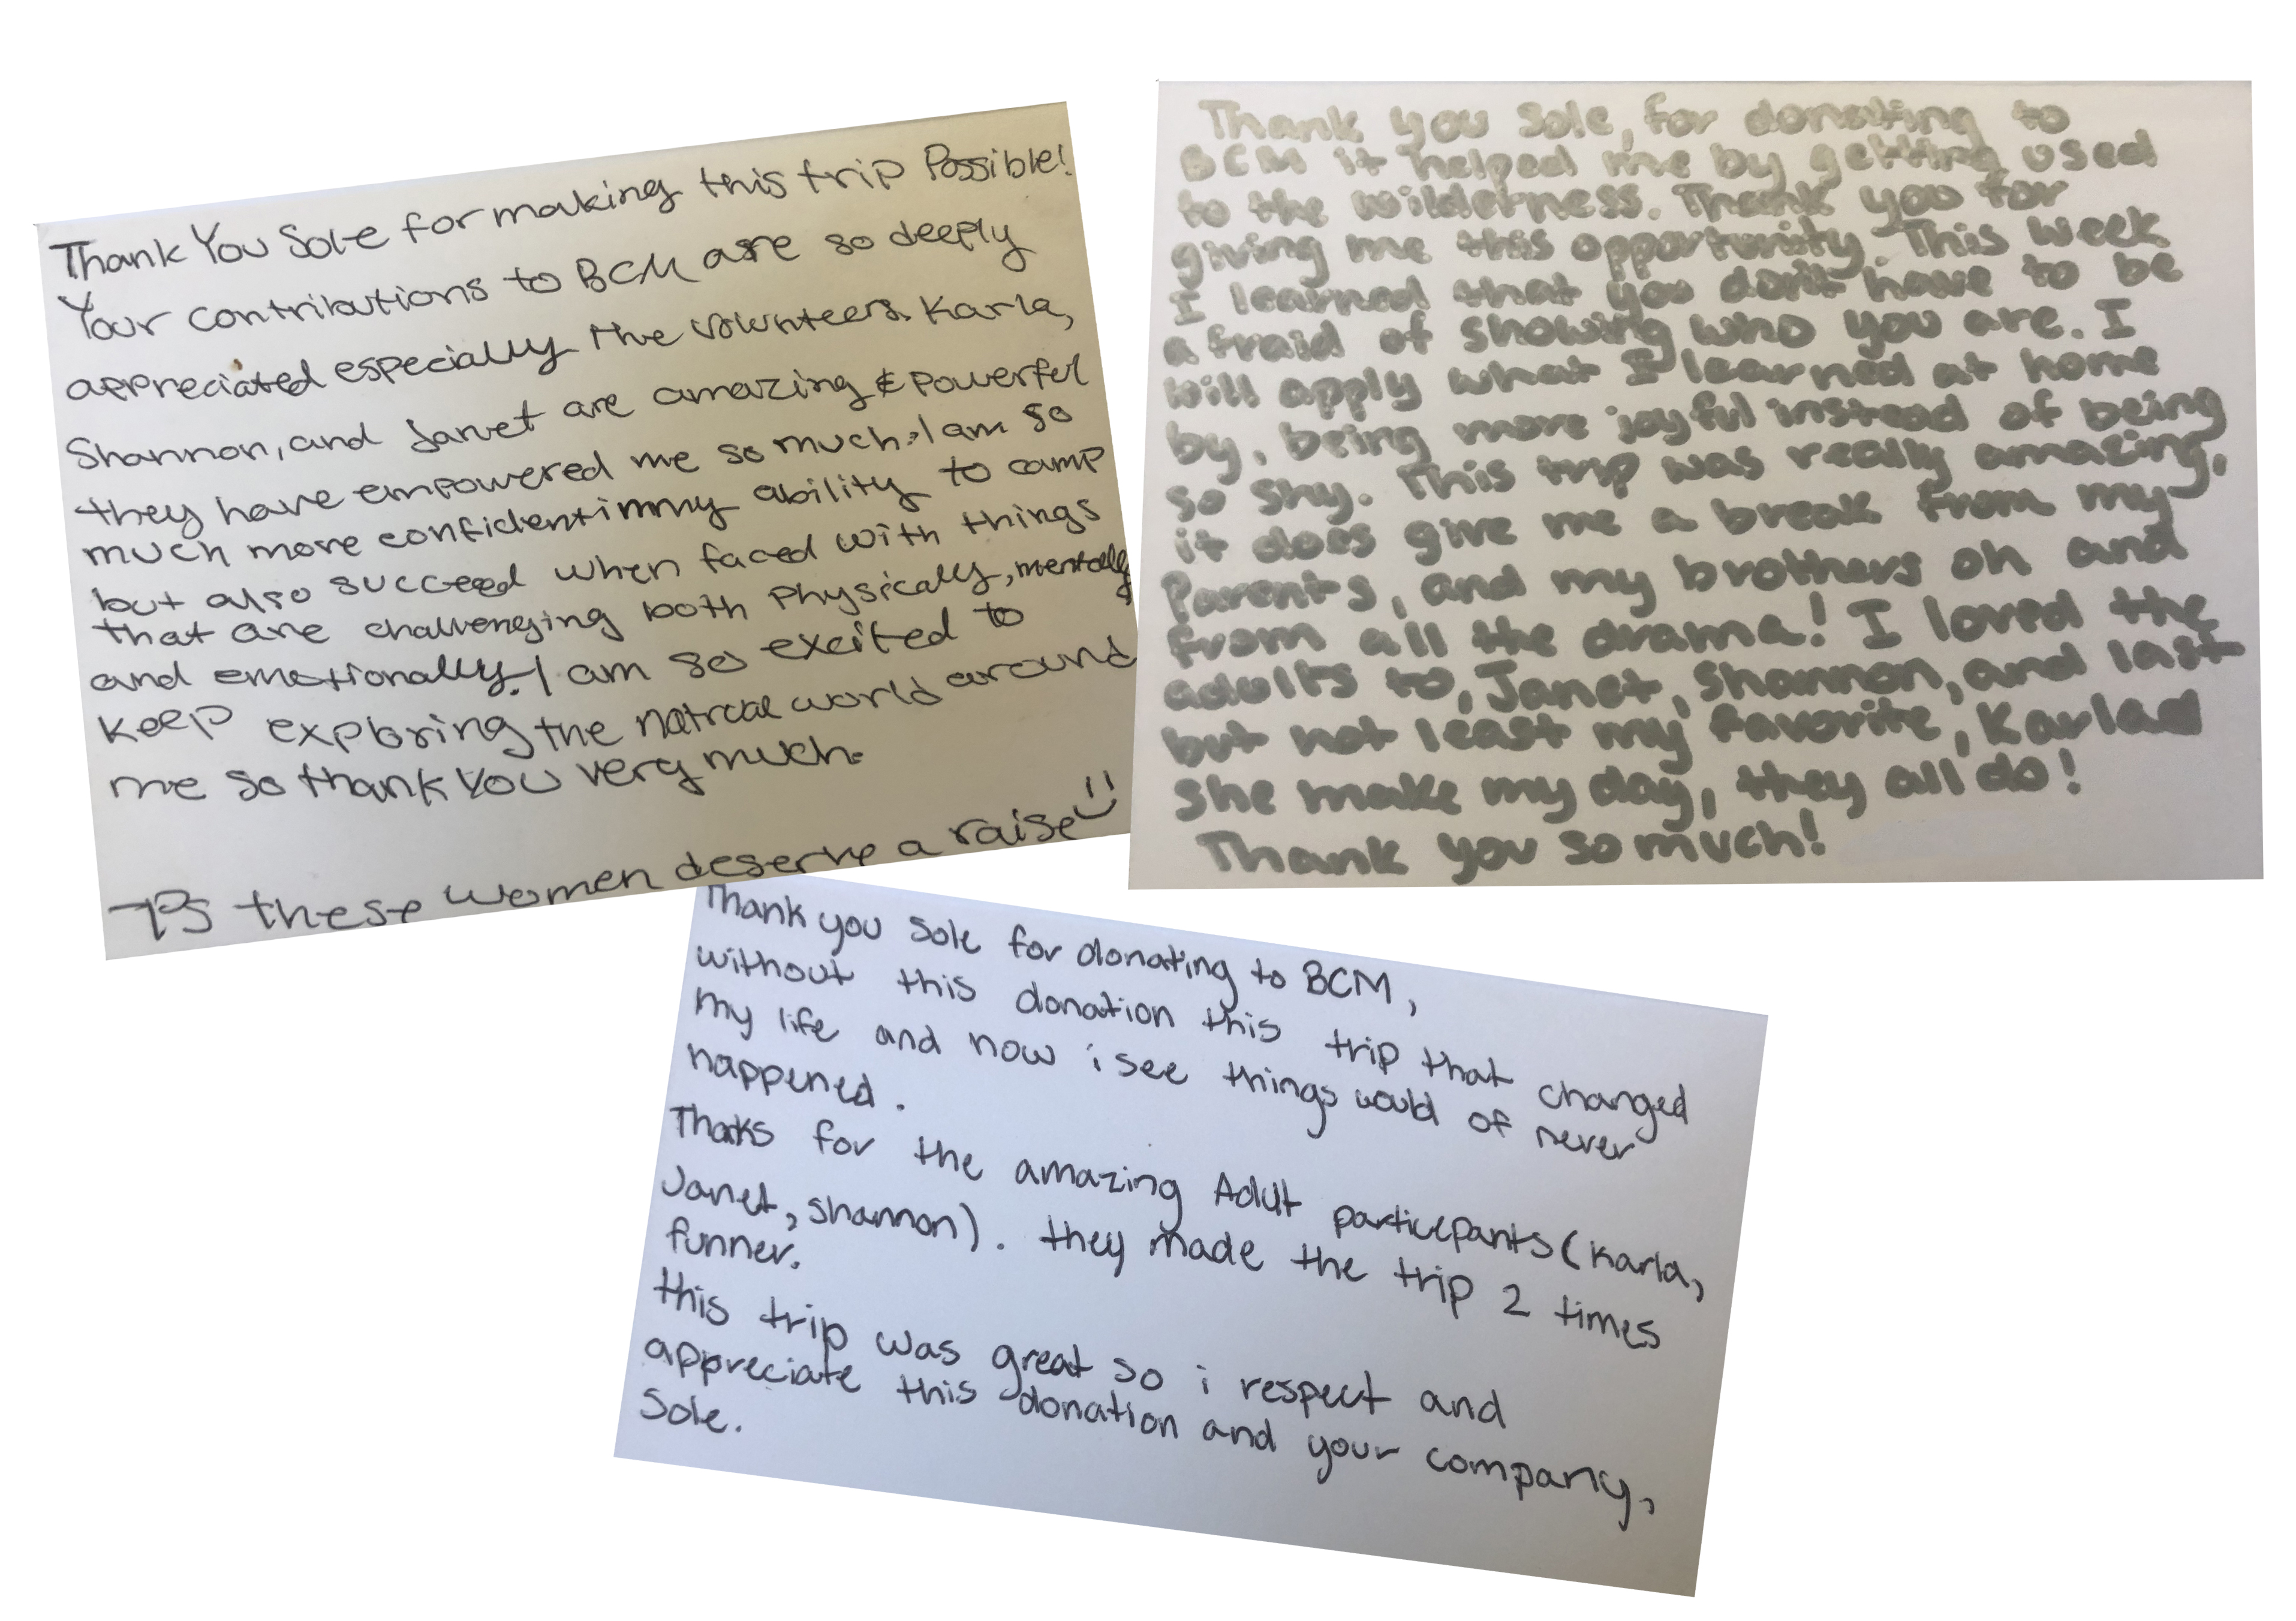 Thank You Sole for making this trip Possible!
Your contributions to BCM are so deeply
appreciated especially the volunteers. Karla,
Shannon, and Janet are amazing & powerful
they have empowered me so much. I am so
much more confident in my ability to camp
but also succeed when faced with things
that are challenging both physically, mentally
and emotionally. I am so excited to
keep exploring the natrual world around
me so thank you very much.
PS these women deserve a raise :)
Thank you Sole, for donating to
BCM it helped me by getting used
to the wilderness. Thank you for
giving me this opportunity. This week
I learned that you don't have to be
afraid of showing who you are. I
will apply what I learned at home
by, being more joyful instead of being
so shy. This trip was really amazing,
it does give me a break from my
Parents, and my brothers oh and
from all the drama! I loved the
adults to, Janet, Shannon, and last
but not least my favorite, Karla
she make my day, they all do!
Thank you so much!
Thank you Sole for donating to BCM,
without this donation this trip that changed
my life and now i see things would of never
happened.
Thanks for the amazing Adult particepants (Karla,
Janet, shannon). they made the trip 2 times
funner.
this trip was great so i respect and
appreciate this donation and your company,
Sole.